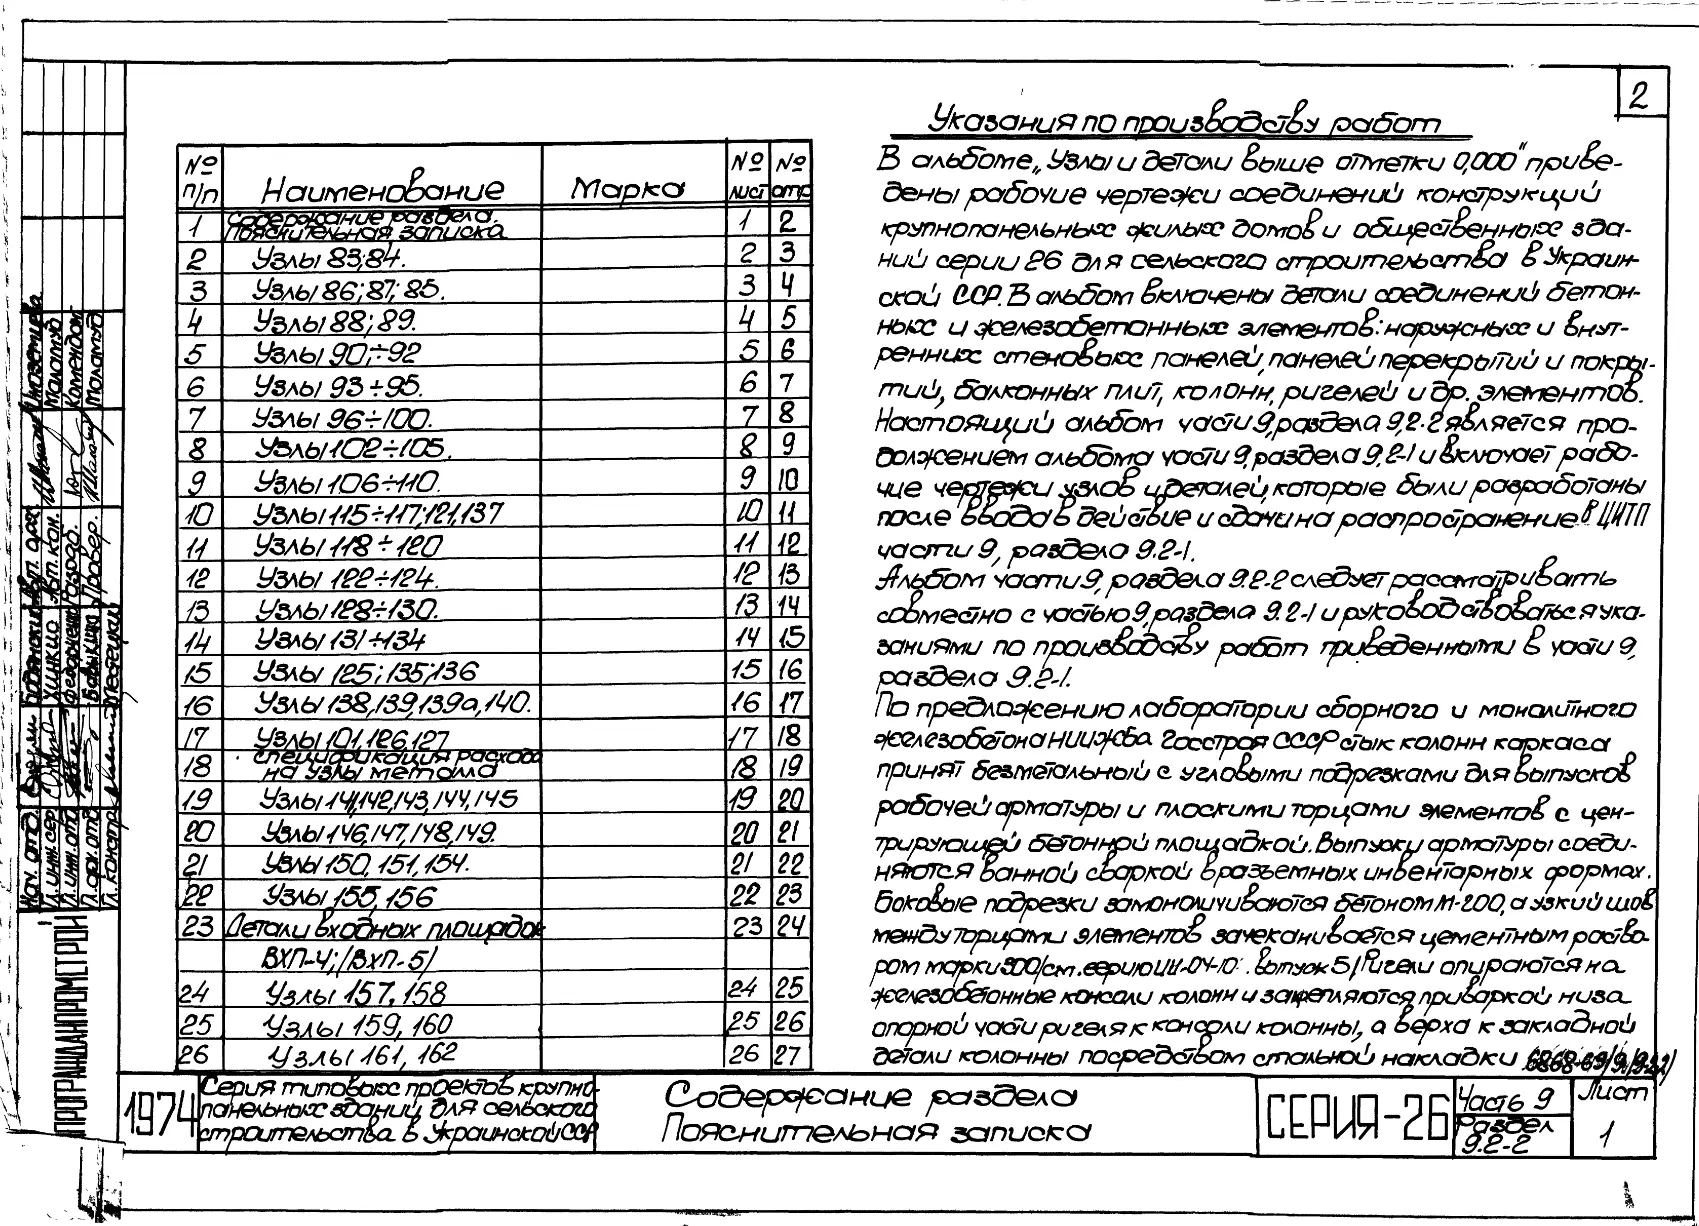 2
№ п/п Наименование Марка № лист № стр
1 Содержание раздела. Пояснительная записка 1 2
2 Узлы 83;84. 2 3
3 Узлы 86;87;85. 3 4
4 Узлы 88;89. 4 5
5 Узлы 90÷92 5 6
6 Узлы 93÷95. 6 7
7 Узлы 96÷100. 7 8
8 Узлы 102÷105. 8 9
9 Узлы 106÷110. 9 10
10 Узлы 115÷117;121,137 10 11
11 Узлы 118÷120 11 12
12 Узлы 122÷124. 12 13
13 Узлы 128÷130. 13 14
14 Узлы 131÷134 14 15
15 Узлы 125;135;136 15 16
16 Узлы 138,139,139а,140. 16 17
17 Узлы 101,126,127 17 18
18 Спецификация расхода на узлы металла 18 19
19 Узлы 141,142,143,144,145 19 20
20 Узлы 146,147,148,149. 20 21
21 Узлы 150,151,154. 21 22
22 Узлы 155,156 22 23
23 Детали входных площадок 23 24
ВХП-4;/ВХП-5/
24 Узлы 157,158 24 25
25 Узлы 159,160 25 26
26 Узлы 161,162 26 27
Указания по производству работ
В альбоме „Узлы и детали выше отметки 0,000" приве-
дены рабочие чертежи соединений конструкций
крупнопанельных жилых домов и общественных зда-
ний серии 26 для сельского строительства в Украин-
ской ССР. В альбом включены детали соединений бетон-
ных и железобетонных элементов: наружных и внут-
ренних стеновых панелей, панелей перекрытий и покры-
тий, балконных плит, колонн, ригелей и др. элементов.
Настоящий альбом части 9, раздела 9.2-2 является про-
должением альбома части 9, раздела 9.2-1 и включает рабо-
чие чертежи узлов и деталей, которые были разработаны
после ввода в действие и сдачи на распространение в ЦИТП
части 9, раздела 9.2-1.
Альбом части 9, раздела 9.2-2 следует рассматривать
совместно с частью 9, раздела 9.2-1 и руководствоваться ука-
заниями по производству работ приведенными в части 9,
раздела 9.2-1.
По предложению лаборатории сборного и монолитного
железобетона НИИЖБа Госстроя СССР стык колонн каркаса
принят безметальный с угловыми подрезками для выпусков
рабочей арматуры и плоскими торцами элементов с цен-
трирующей бетонной площадкой. Выпуски арматуры соеди-
няются ванной сваркой в разъемных инвентарных формах.
Боковые подрезки замоноличиваются бетоном М-200, а узкий шов
между торцами элементов зачеканивается цементным раство-
ром марки 300/см. серию ИИ-04-10. выпуск 5/. Ригели опираются на
железобетонные консоли колонн и закрепляются приваркой низа
опорной части ригеля к консоли колонны, а верха к закладной
детали колонны посредством стальной накладки
1974
Серия типовых проектов крупно-
панельных зданий для сельского
строительства в Украинской ССР
Содержание раздела
Пояснительная записка
СЕРИЯ-26
Часть 9
Раздел
9.2-2
Лист
1